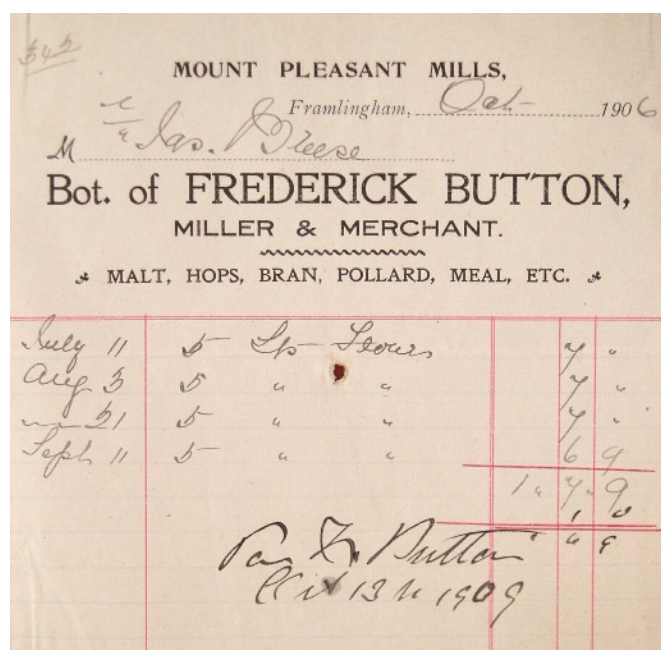 542
MOUNT PLEASANT MILLS,
Framlingham, Oct 1906
M Jas. Breese
Bot. of FREDERICK BUTTON,
MILLER & MERCHANT.
MALT, HOPS, BRAN, POLLARD, MEAL, ETC.
July 11 5 Flours 7 "
Aug 3 5 " " 7 "
21 5 " " 7 "
Sept 11 5 " " 6 9
1 " 7 " 9
1 0
" 6 9
F. Button
Oct 13th 1909